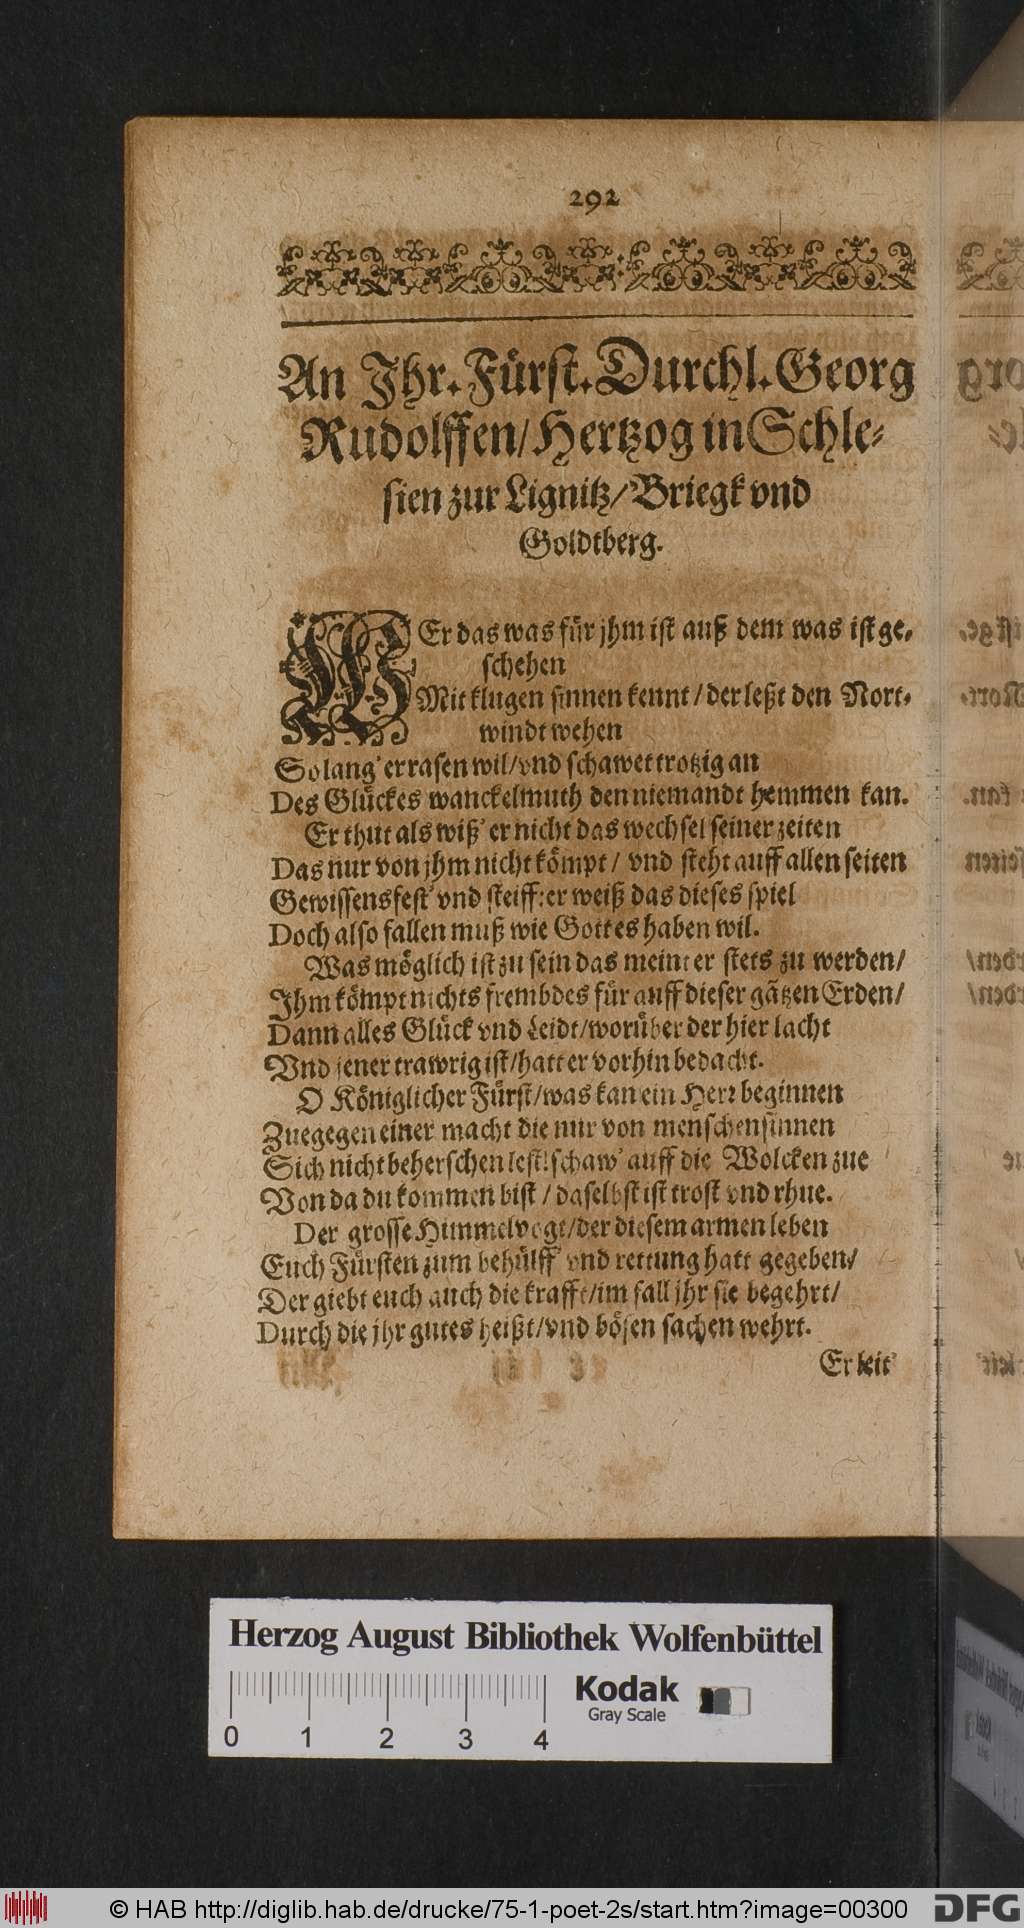 292
An Jhr. Fürst. Durchl. Georg
Rudolffen/ Hertzog in Schle-
sien zur Lignitz/ Briegk vnd
Goldtberg.
WEr das was für jhm ist auß dem was ist ge-
schehen
Mit klugen sinnen kennt / der leßt den Nort-
windt wehen
So lang' er rasen wil/ vnd schawet trotzig an
Des Glückes wanckelmuth den niemandt hemmen kan.
Er thut als wiß' er nicht das wechsel seiner zeiten
Das nur von jhm nicht kömpt / vnd steht auff allen seiten
Gewissensfest' vnd steiff: er weiß das dieses spiel
Doch also fallen muß wie Gott es haben wil.
Was möglich ist zu sein das meint er stets zu werden/
Jhm kömpt nichts frembdes für auff dieser gãtzen Erden/
Dann alles Glück vnd Leidt/ worüber der hier lacht
Vnd jener trawrig ist/ hatt er vorhin bedacht.
O Königlicher Fürst/ was kan ein Herr beginnen
Zuegegen einer macht die nur von menschen sinnen
Sich nicht beherschen lest! schaw' auff die Wolcken zue
Von da du kommen bist / daselbst ist trost vnd rhue.
Der grosse Himmelvogt/ der diesem armen leben
Euch Fürsten zum behülff' vnd rettung hatt gegeben/
Der giebt euch auch die krafft/ im fall jhr sie begehrt/
Durch die jhr gutes heißt/ vnd bösen sachen wehrt.
Er leit'
Herzog August Bibliothek Wolfenbüttel
Kodak
Gray Scale
0 1 2 3 4
© HAB http://diglib.hab.de/drucke/75-1-poet-2s/start.htm?image=00300
DFG